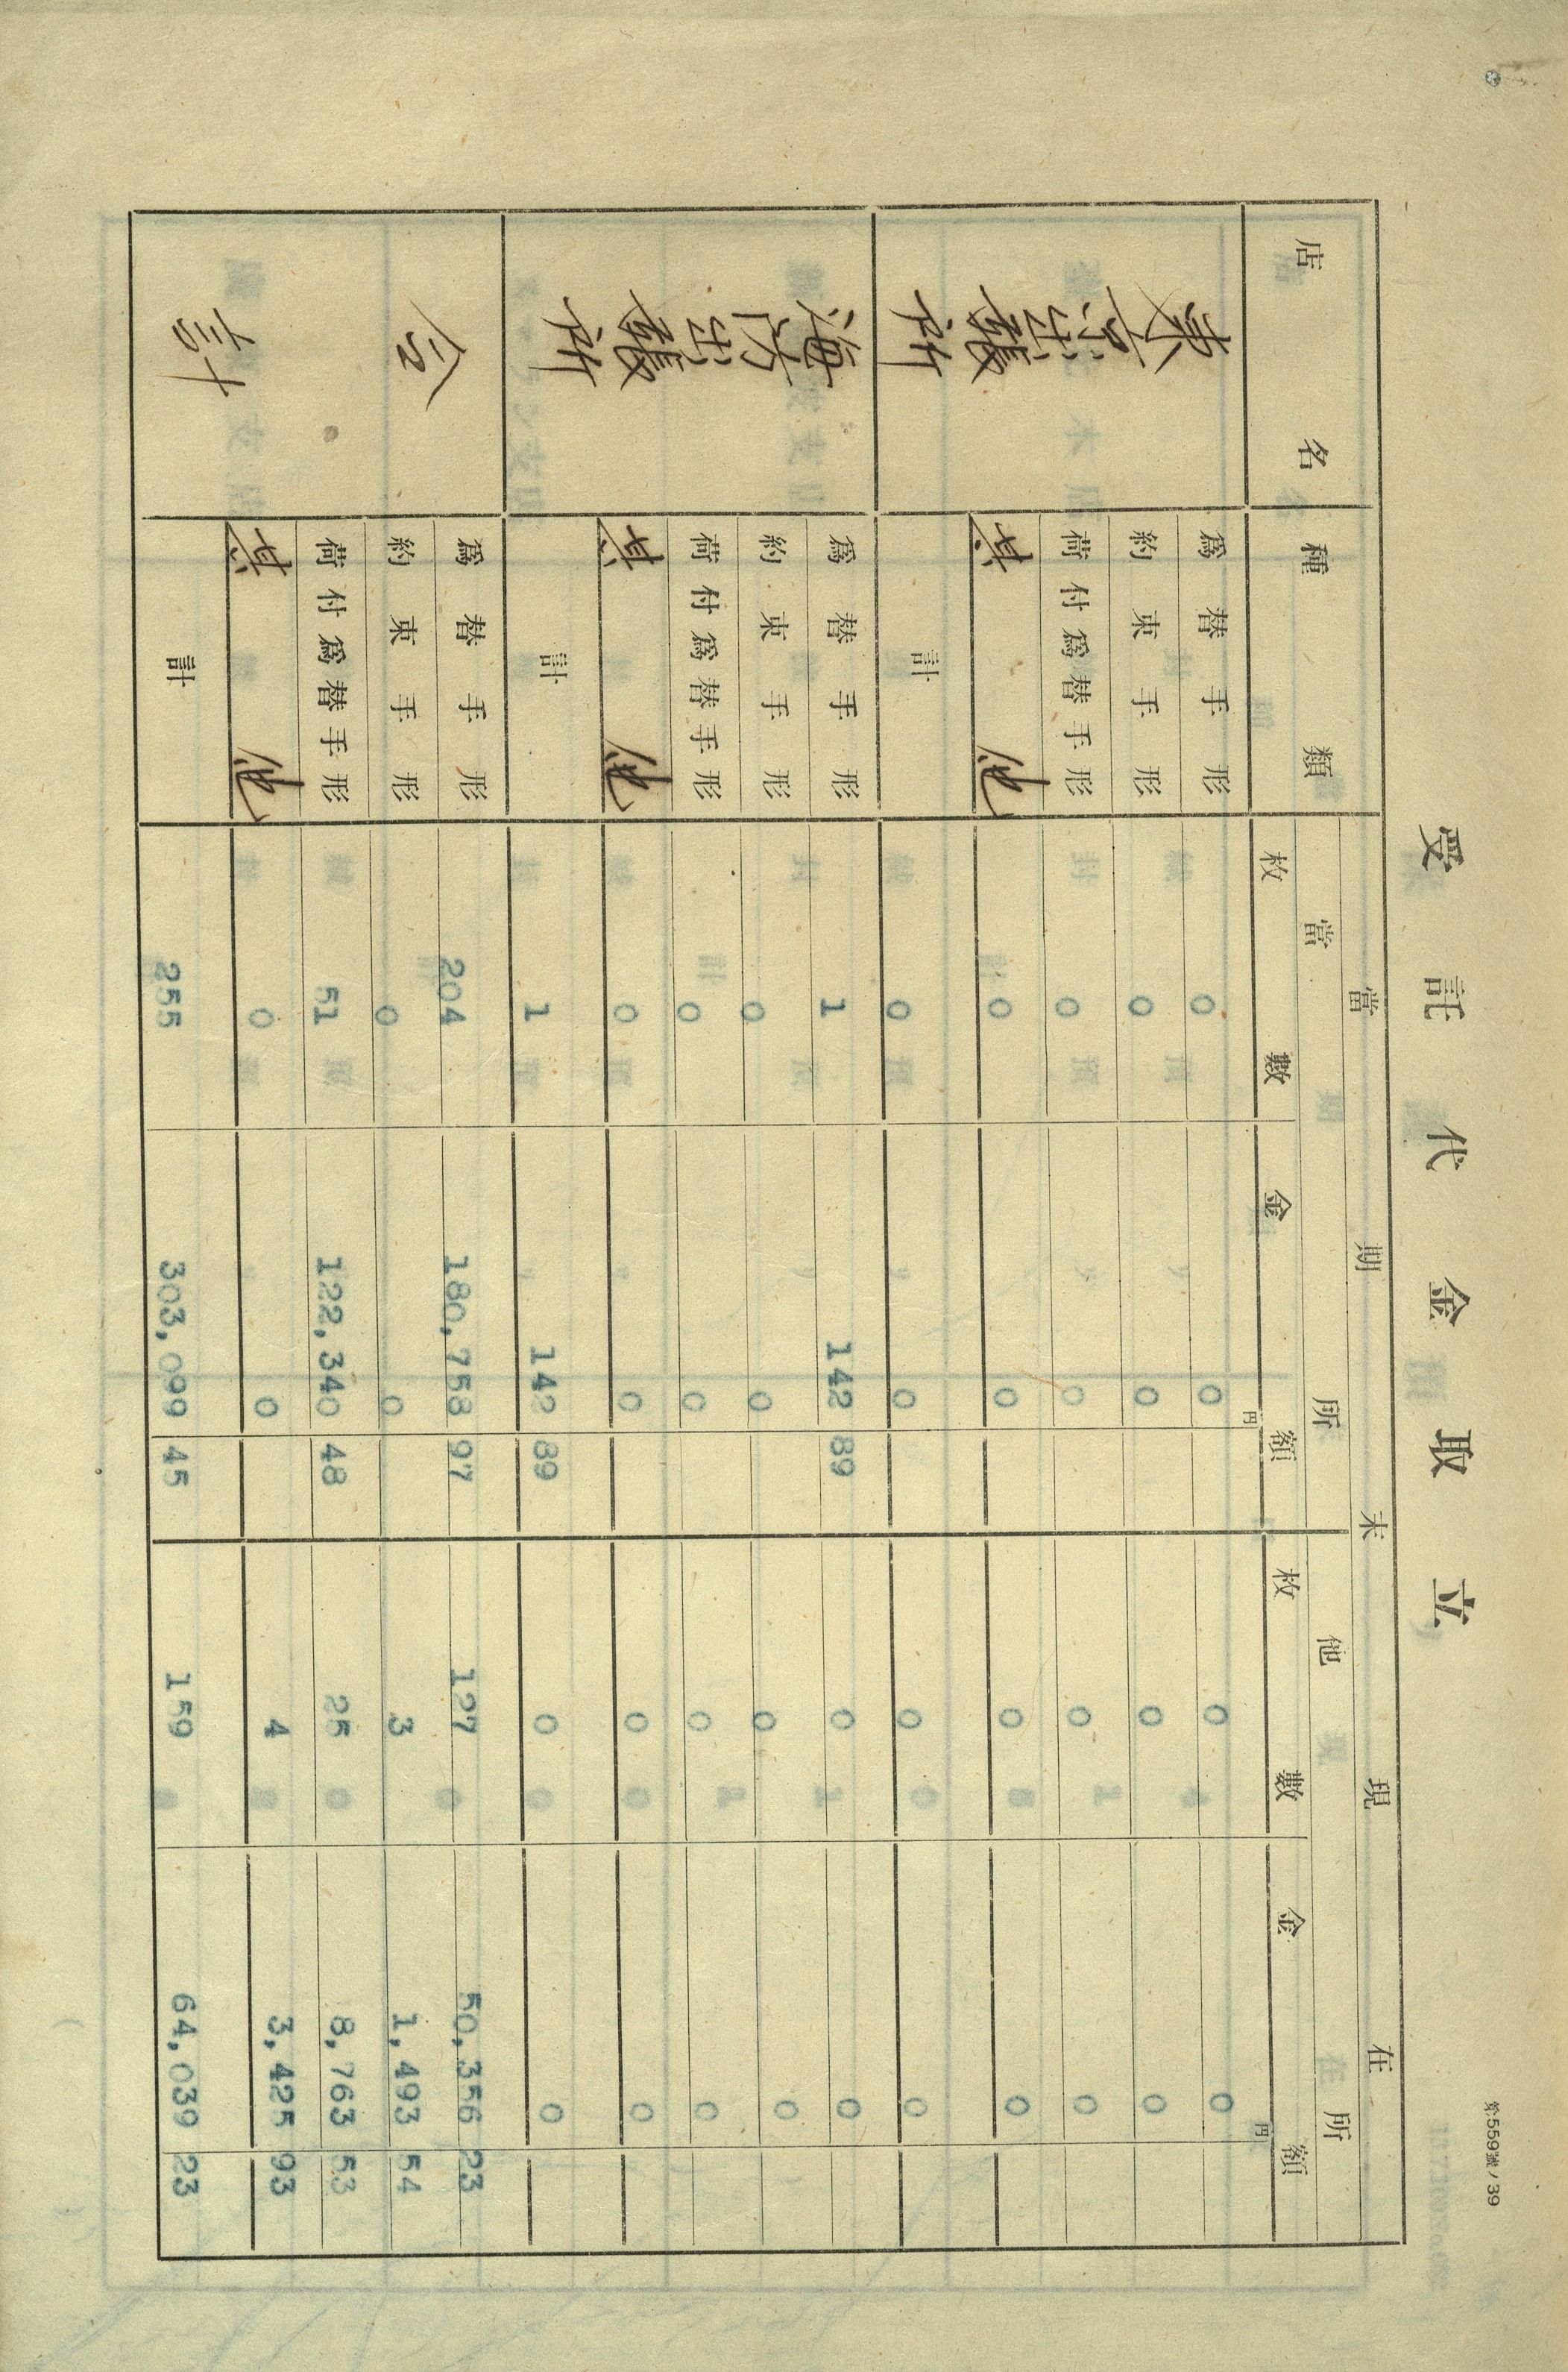 第559號ノ39
受託代金取立
店名 種類 當期末現在
當所 他所
枚數 金額 枚數 金額
円 円
東京出張所 爲替手形 0 0 0 0
約束手形 0 0 0 0
荷付爲替手形 0 0 0 0
其他 0 0 0 0
計 0 0 0 0
海防出張所 爲替手形 1 142 89 0 0
約束手形 0 0 0 0
荷付爲替手形 0 0 0 0
其他 0 0 0 0
計 1 142 89 0 0
合計 爲替手形 204 180,758 97 127 50,356 23
約束手形 0 0 3 1,493 54
荷付爲替手形 51 122,340 48 25 8,763 53
其他 0 0 4 3,425 93
計 255 303,099 45 159 64,039 23